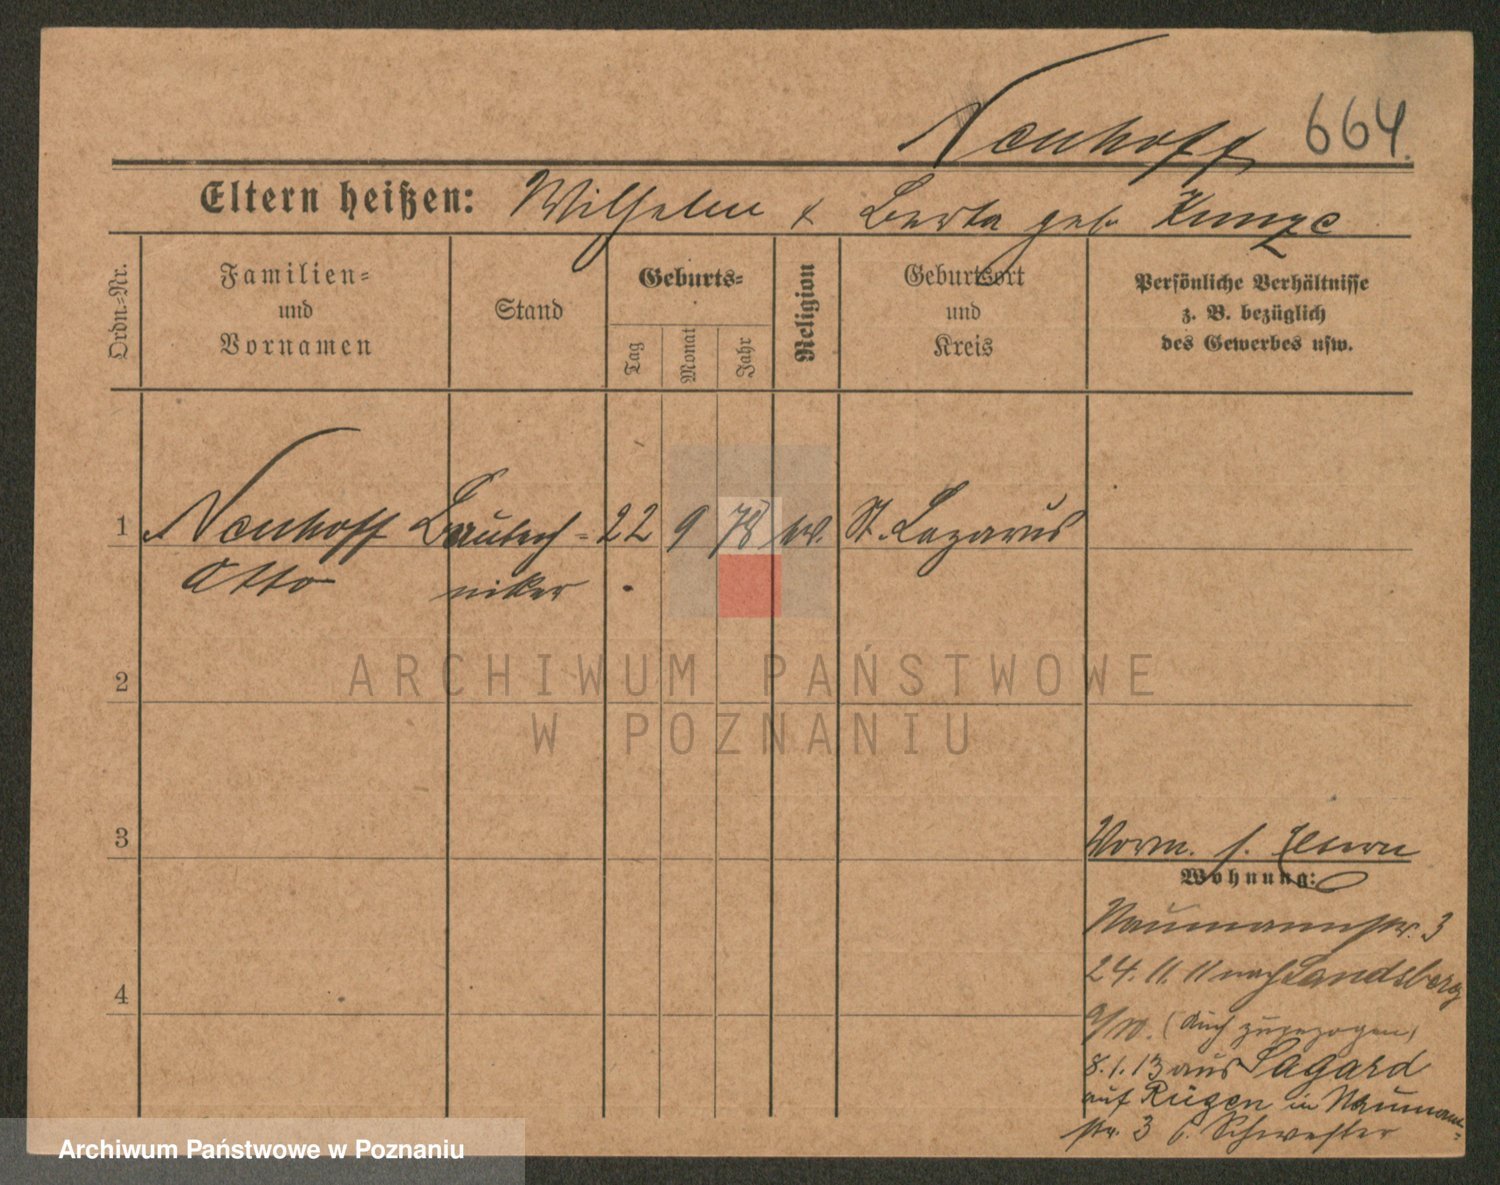 Neuhoff 664.
Eltern heißen: Wilhelm & Berta geb. Kunze
Ordn.-Nr.
Familien-
und
Vornamen
Stand
Geburts-
Tag
Monat
Jahr
Religion
Geburtsort
und
Kreis
Persönliche Verhältnisse
z. B. bezüglich
des Gewerbes usw.
1 Neuhoff Bautech- 22 9 78 ev. St. Lazarus
Otto niker
2
3
4
Vorm. s. Eltern
Wohnung:
Naumannstr. 3
24. 11. 11 nach Landsberg
a/W. (Auch zugezogen)
8. 1. 13 aus Sagard
auf Rügen in Naumann-
str. 3 b. Schwester
ARCHIWUM PAŃSTWOWE
W POZNANIU
Archiwum Państwowe w Poznaniu